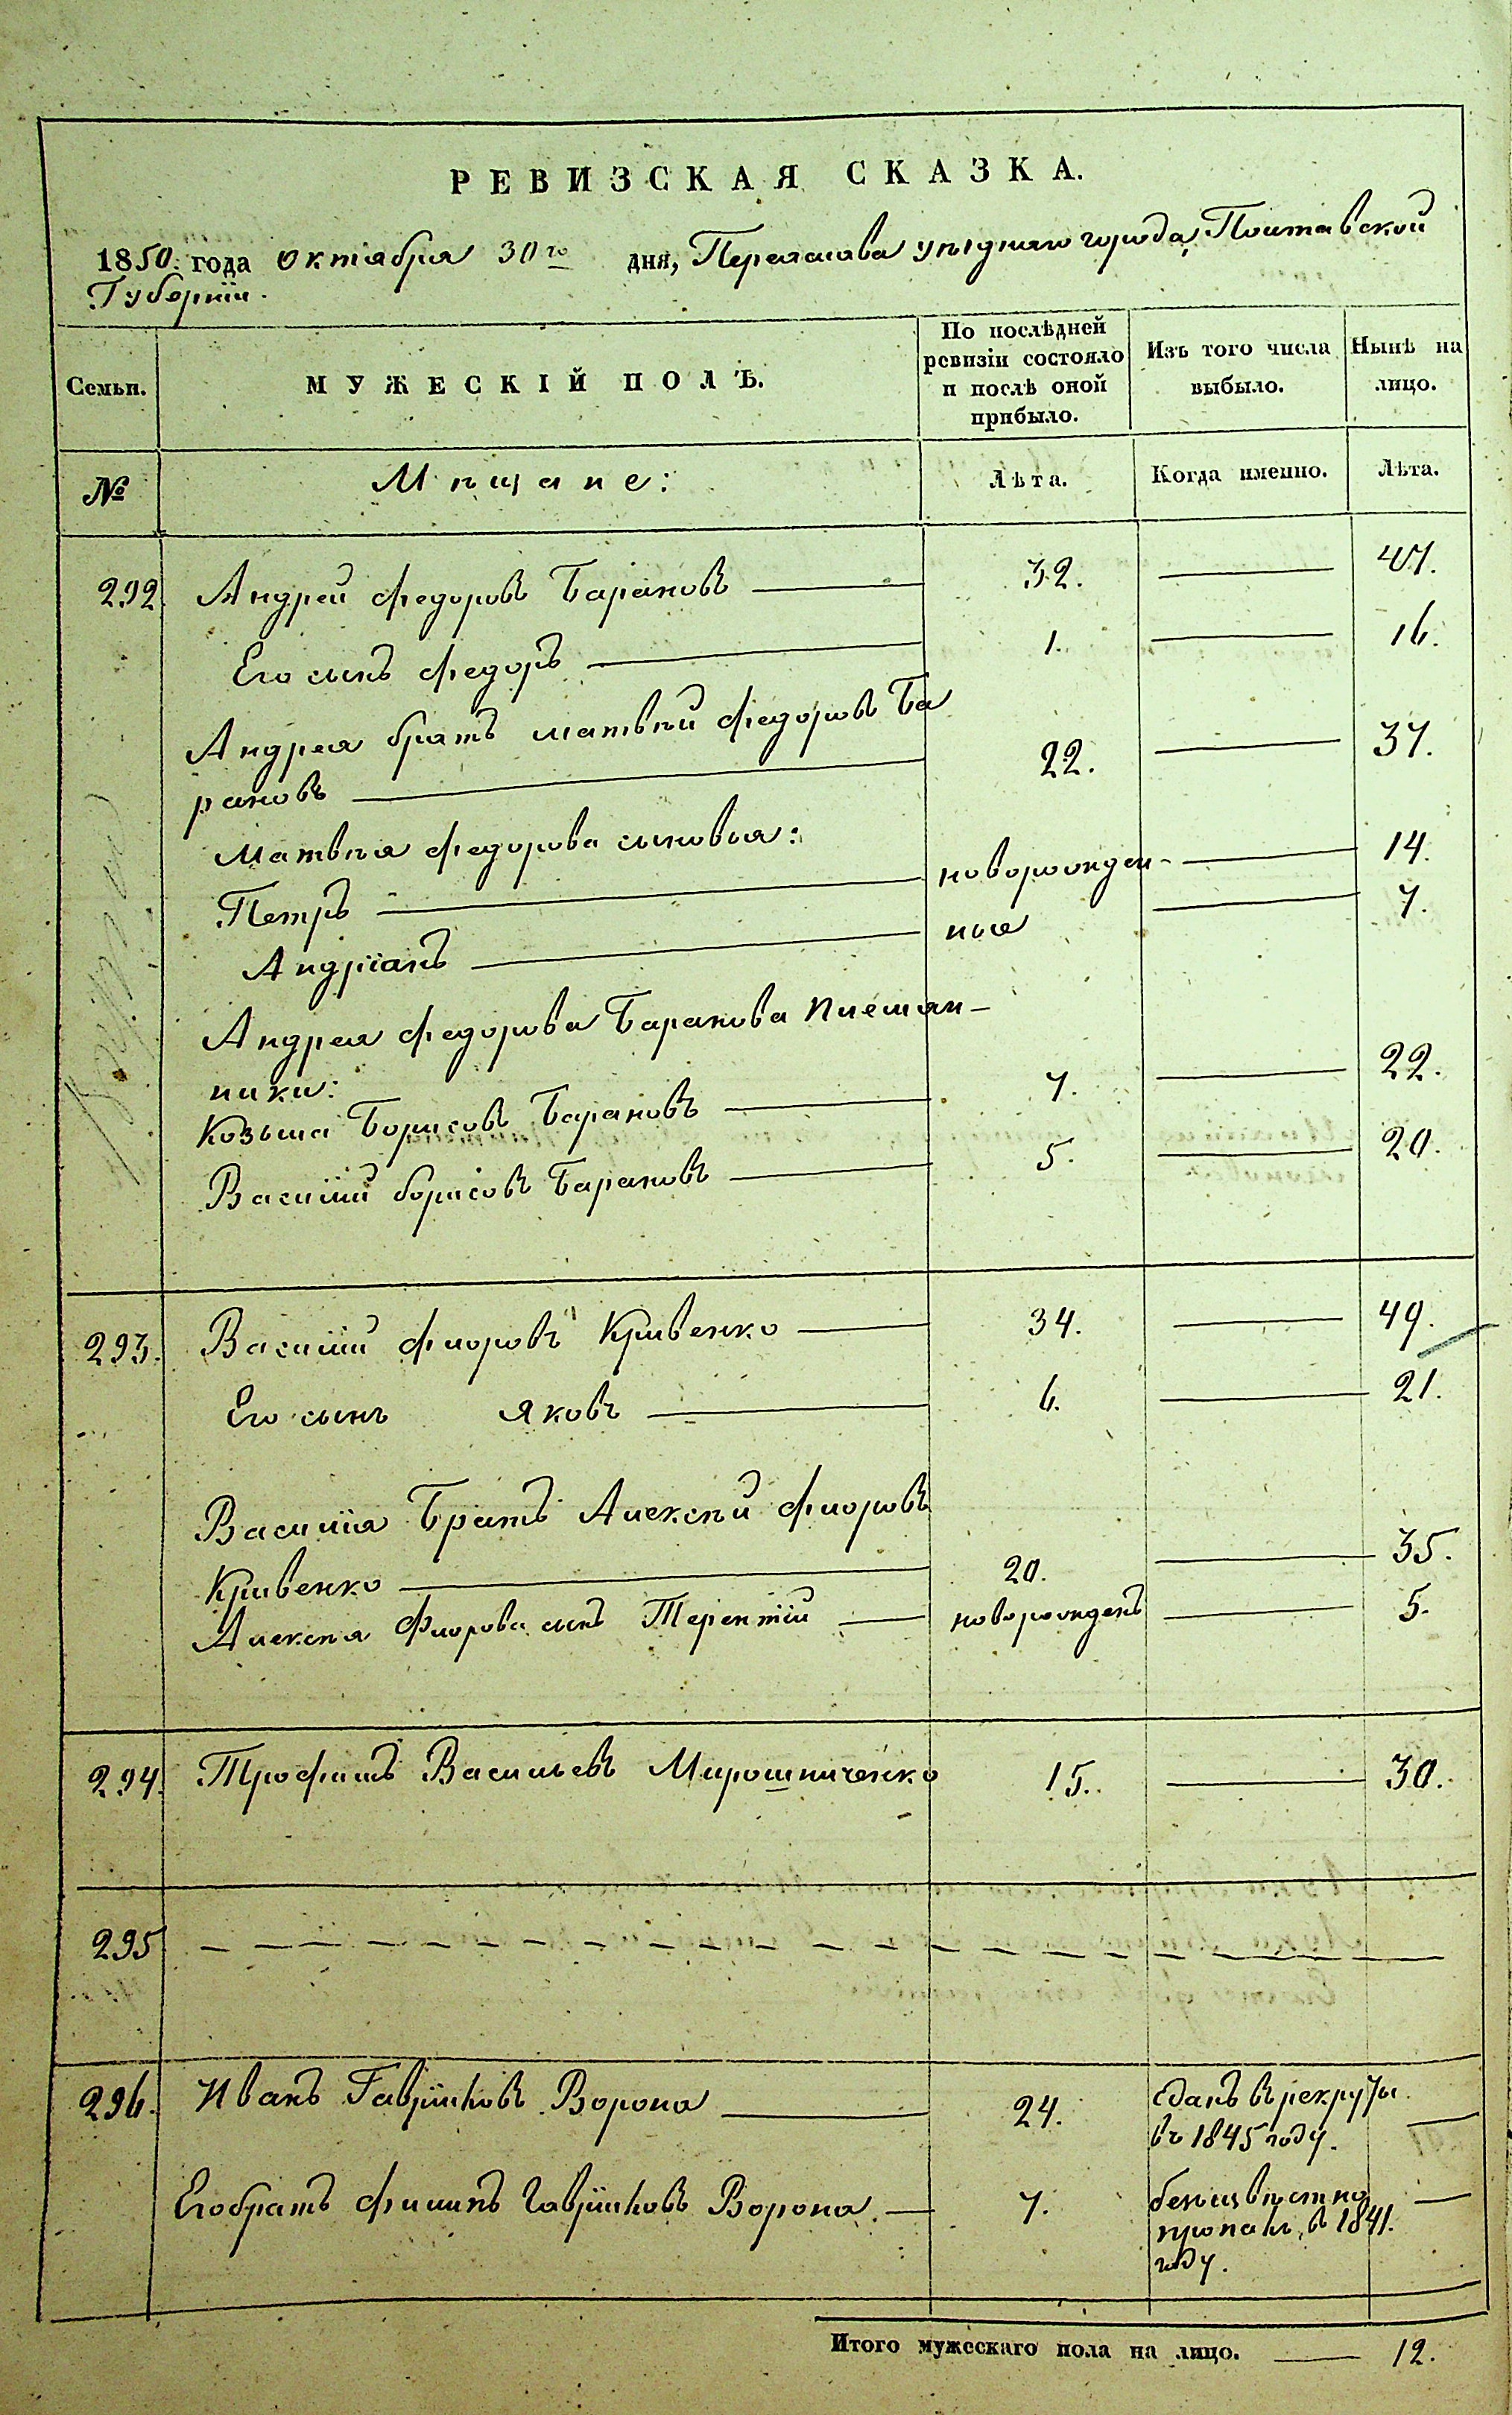 РЕВИЗСКАЯ СКАЗКА.
1850. года Октября 30го дня, Переяслава уѣзднаго города, Полтавской
Губерніи.
Семьи. МУЖЕСКІЙ ПОЛЪ. По послѣдней ревизіи состояло и послѣ оной прибыло. Изъ того числа выбыло. Нынѣ на лицо.
№ Мѣщане: Лѣта. Когда именно. Лѣта.
292. Андрей Федоровъ Барановъ 32. 47.
Его сынъ Федоръ 1. 16.
Андрея братъ Матвѣй Федоровъ Ба
рановъ 22. 37.
Матвѣя Федорова сыновья:
Петръ новорожден- 14.
Андріанъ ные 7.
Андрея Федорова Баранова племян-
ники:
Козьма Борисовъ Барановъ 7. 22.
Василій Борисовъ Барановъ 5. 20.
293. Василій Флоровъ Кривенко 34. 49.
Его сынъ Яковъ 6. 21.
Василія Братъ Алексѣй Флоровъ
Кривенко 20. 35.
Алексѣя Флорова сынъ Терентій новорожденъ 5.
294. Трофимъ Васильевъ Мирошниченко 15. 30.
295
296. Иванъ Гавриловъ Ворона 24. Сданъ въ рекруты
въ 1845 году.
Его братъ Филипъ Гавриловъ Ворона. 7. безизвѣстно
пропалъ, в 1841.
году.
Итого мужескаго пола на лицо. 12.